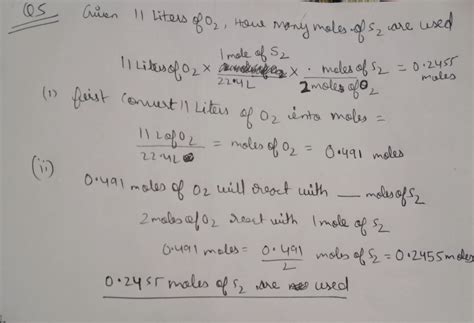 Q5 Given 11 Liters of O2, How many moles of S2 are used
11 Liters of O2 × 1 mole of S2 / 22.4L × . moles of S2 / 2 moles of O2 = 0.2455 moles
(i) first convert 11 Liters of O2 into moles =
11 L of O2 / 22.4L = moles of O2 = 0.491 moles
(ii)
0.491 moles of O2 will react with __ moles of S2
2 moles of O2 react with 1 mole of S2
0.491 moles = 0.491 / 2 moles of S2 = 0.2455 moles
0.2455 moles of S2 are used